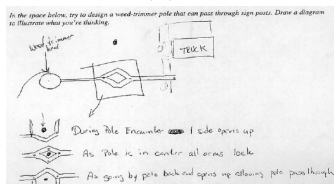 In the space below, try to design a weed-trimmer pole that can pass through sign posts. Draw a diagram
to illustrate what you're thinking.
Weed-trimmer
head
TRUCK
During Pole Encounter 1 side opens up
As Pole is in center all arms lock
As going by pole back end opens up allowing pole pass through